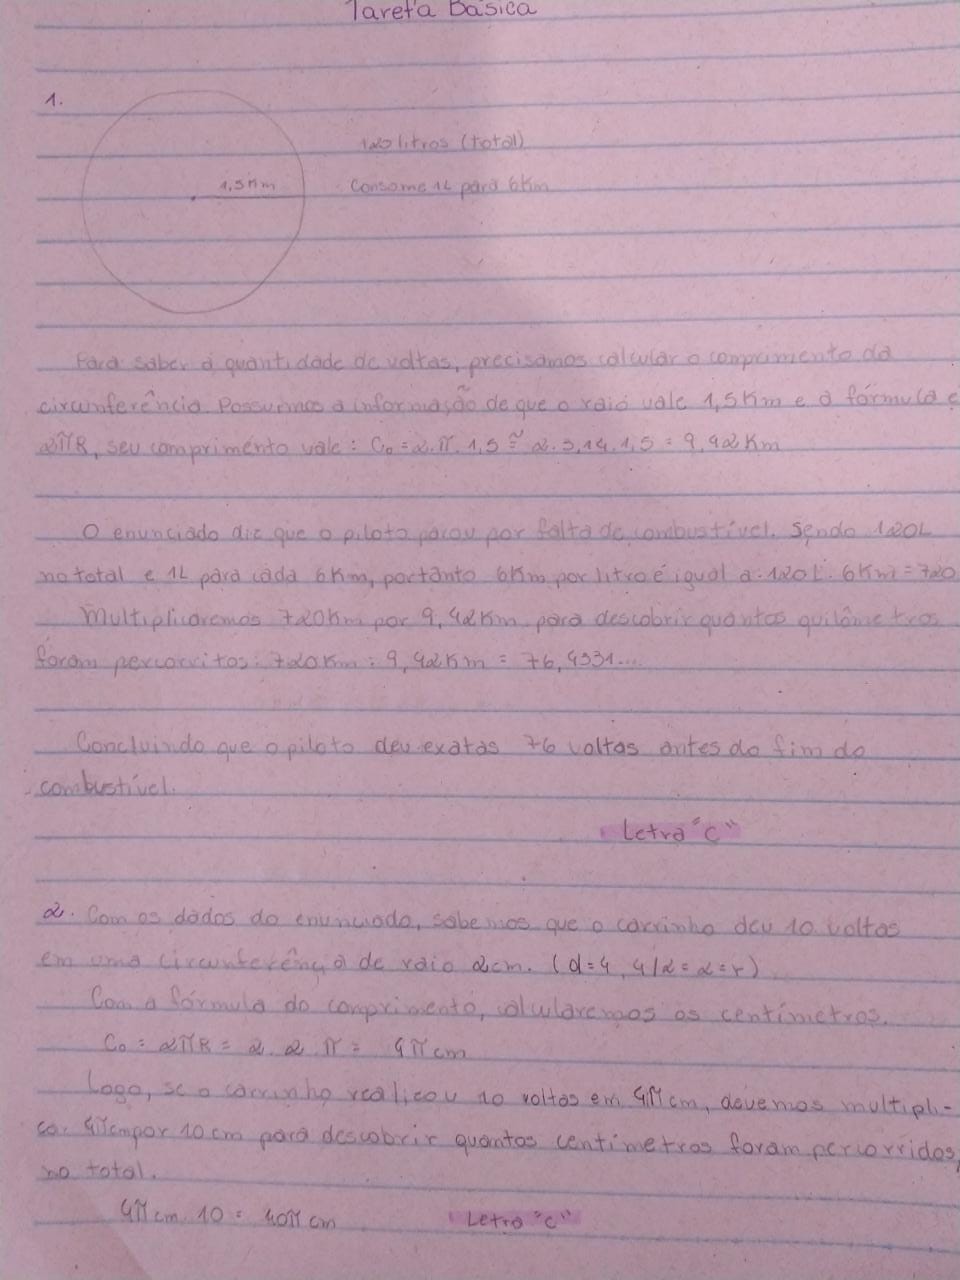 Tarefa Básica
1.
120 litros (total)
1,5Km
Consome 1L para 6Km
Para saber a quantidade de voltas, precisamos calcular o comprimento da
circunferência. Possuimos a informação de que o raio vale 1,5Km e a fórmula é
2πR, seu comprimento vale: C₀ = 2.π.1,5 ≅ 2.3,14.1,5 = 9,42Km
O enunciado diz que o piloto parou por falta de combustível. Sendo 120L
no total e 1L para cada 6Km, portanto 6Km por litro é igual a: 120L. 6Km = 720
Multiplicaremos 720Km por 9,42Km para descobrir quantos quilômetros
foram percorritos: 720Km : 9,42Km = 76,4331...
Concluindo que o piloto deu exatas 76 voltas antes do fim do
combustível.
Letra "C"
2. Com os dados do enunciado, sabemos que o carrinho deu 10 voltas
em uma circunferência de raio 2cm. (d=4, 4/2=2=r)
Com a fórmula do comprimento, calcularemos os centímetros.
C₀ = 2πR = 2.2.π = 4πcm
Logo, se o carrinho realizou 10 voltas em 4πcm, devemos multipli-
car 4πcm por 10cm para descobrir quantos centímetros foram percorridos,
no total.
4πcm.10 = 40πcm
Letra "C"